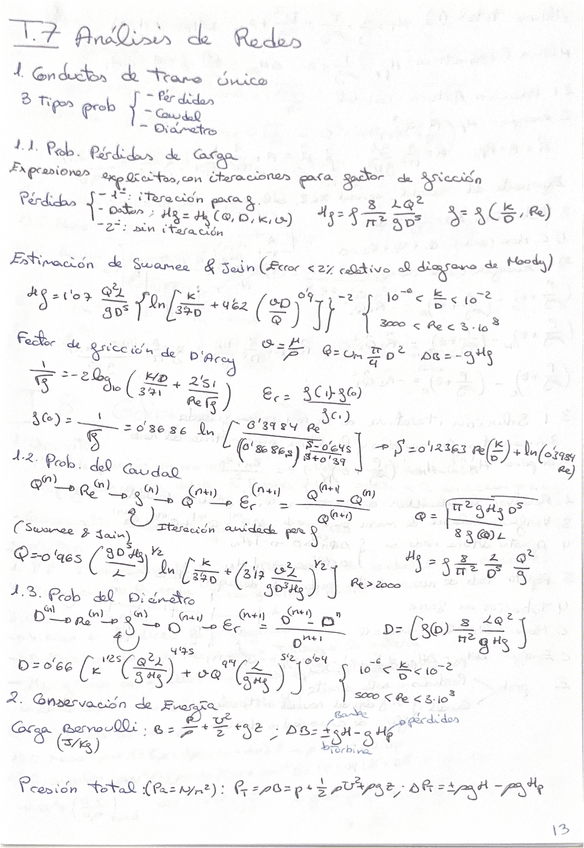 T.7 Análisis de Redes
1. Conductos de tramo único
3 Tipos prob { - Pérdidas
- Caudal
- Diámetro
1.1. Prob. Pérdidas de Carga
Expresiones explícitas, con iteraciones para factor de fricción
Pérdidas { - 1ª: iteración para f.
- Datos; Hf = Hf (Q, D, K, υ)
- 2ª: sin iteración
Hf = f 8/π² LQ²/gD⁵ f = f (K/D, Re)
Estimación de Swamee & Jein (Error < 2% relativo al diagrama de Moody)
Hf = 1'07 Q²L/gD⁵ { ln [ K/3'7D + 4'62 (υD/Q)^0'9 ] }^-2 { 10^-6 < K/D < 10^-2
3000 < Re < 3·10^8
Factor de fricción de D'Arcy υ = μ/ρ Q = Um π/4 D² ΔB = -gHf
1/√f = -2 log10 ( K/D/3'71 + 2'51/Re√f ) Er = f(1)-f(0)/f(1)
f(0) = 1/√f = 0'8686 ln [ 0'3984 Re/(0'8686 s)^(s-0'645/s+0'39) ] → s = 0'12363 Re (K/D) + ln (0'3984 Re)
1.2. Prob. del Caudal
Q^(n) → Re^(n) → f^(n) → Q^(n+1) → Er^(n+1) = Q^(n+1) - Q^(n)/Q^(n+1) Q = √(π² g Hf D⁵/8 f(Q) L)
Iteración anidada per f
(Swamee & Jain)
Q = -0'965 (gD⁵Hf/L)^1/2 ln [ K/3'7D + (3'17 υ²L/gD³Hf)^1/2 ] Re > 2000 Hf = f 8/π² L/D⁵ Q²/g
1.3. Prob del Diámetro
D^(n) → Re^(n) → f^(n) → D^(n+1) → Er^(n+1) = D^(n+1) - D^n/D^n+1 D = [ f(D) 8/π² LQ²/gHf ]
D = 0'66 ( K^1'25 (Q²L/gHf)^4'75 + υQ^9'4 (L/gHf)^5'2 )^0'04 { 10^-6 < K/D < 10^-2
5000 < Re < 3·10^8
2. Conservación de Energía
Carga Bernoulli: B = p/ρ + v²/2 + gz ; ΔB = ±gH - gHp
bomba
pérdidas
turbina
(J/Kg)
Presión total: (Pa = N/m²): PT = ρB = p + 1/2 ρv² + ρgz ; ΔPT = ±ρgH - ρgHp
13